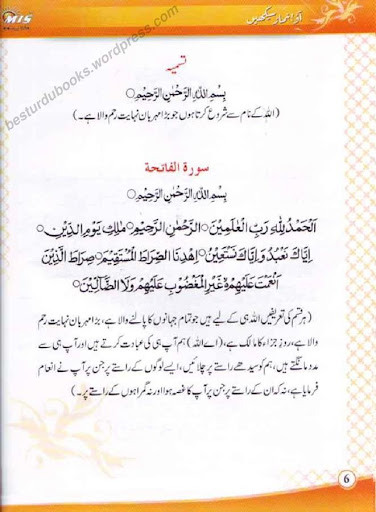 MIS
آؤ نماز سیکھیں
besturdubooks.wordpress.com
تسمیہ
بِسْمِ اللّٰهِ الرَّحْمٰنِ الرَّحِيْمِ○
(اللہ کے نام سے شروع کرتا ہوں جو بڑا مہربان نہایت رحم والا ہے۔)
سورة الفاتحة
بِسْمِ اللّٰهِ الرَّحْمٰنِ الرَّحِيْمِ○
اَلْحَمْدُ لِلّٰهِ رَبِّ الْعٰلَمِيْنَ○ الرَّحْمٰنِ الرَّحِيْمِ○ مٰلِكِ يَوْمِ الدِّيْنِ○
اِيَّاكَ نَعْبُدُ وَاِيَّاكَ نَسْتَعِيْنُ○ اِهْدِنَا الصِّرَاطَ الْمُسْتَقِيْمَ○ صِرَاطَ الَّذِيْنَ
اَنْعَمْتَ عَلَيْهِمْ○ غَيْرِ الْمَغْضُوْبِ عَلَيْهِمْ وَلَا الضَّآلِّيْنَ○
(ہر قسم کی تعریفیں اللہ ہی کے لیے ہیں جو تمام جہانوں کا پالنے والا ہے، بڑا مہربان نہایت رحم
والا ہے، روزِ جزاء کا مالک ہے، (اے اللہ) ہم آپ ہی کی عبادت کرتے ہیں اور آپ ہی سے
مدد مانگتے ہیں، ہم کو سیدھے راستے پر چلائیں، ایسے لوگوں کے راستے پر جن پر آپ نے انعام
فرمایا ہے، نہ کہ ان کے راستے پر جن پر آپ کا غصہ ہوا اور نہ گمراہوں کے راستے پر۔)
6